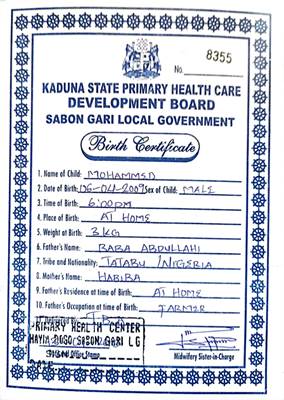 No. 8355
KADUNA STATE PRIMARY HEALTH CARE
DEVELOPMENT BOARD
SABON GARI LOCAL GOVERNMENT
Birth Certificate
1. Name of Child: MOHAMMED
2. Date of Birth: 06-04-2009 Sex of Child: MALE
3. Time of Birth: 6:00pm
4. Place of Birth: AT HOME
5. Weight at Birth: 3KG
6. Father's Name: BABA ABDULLAHI
7. Tribe and Nationality: /NIGERIA
8. Mother's Name: HABIBA
9. Father's Residence at time of Birth: AT HOME
10. Father's Occupation at time of Birth: FARMER
PRIMARY HEALTH CENTER
SABON GARI LG
Midwifery Sister-in-Charge